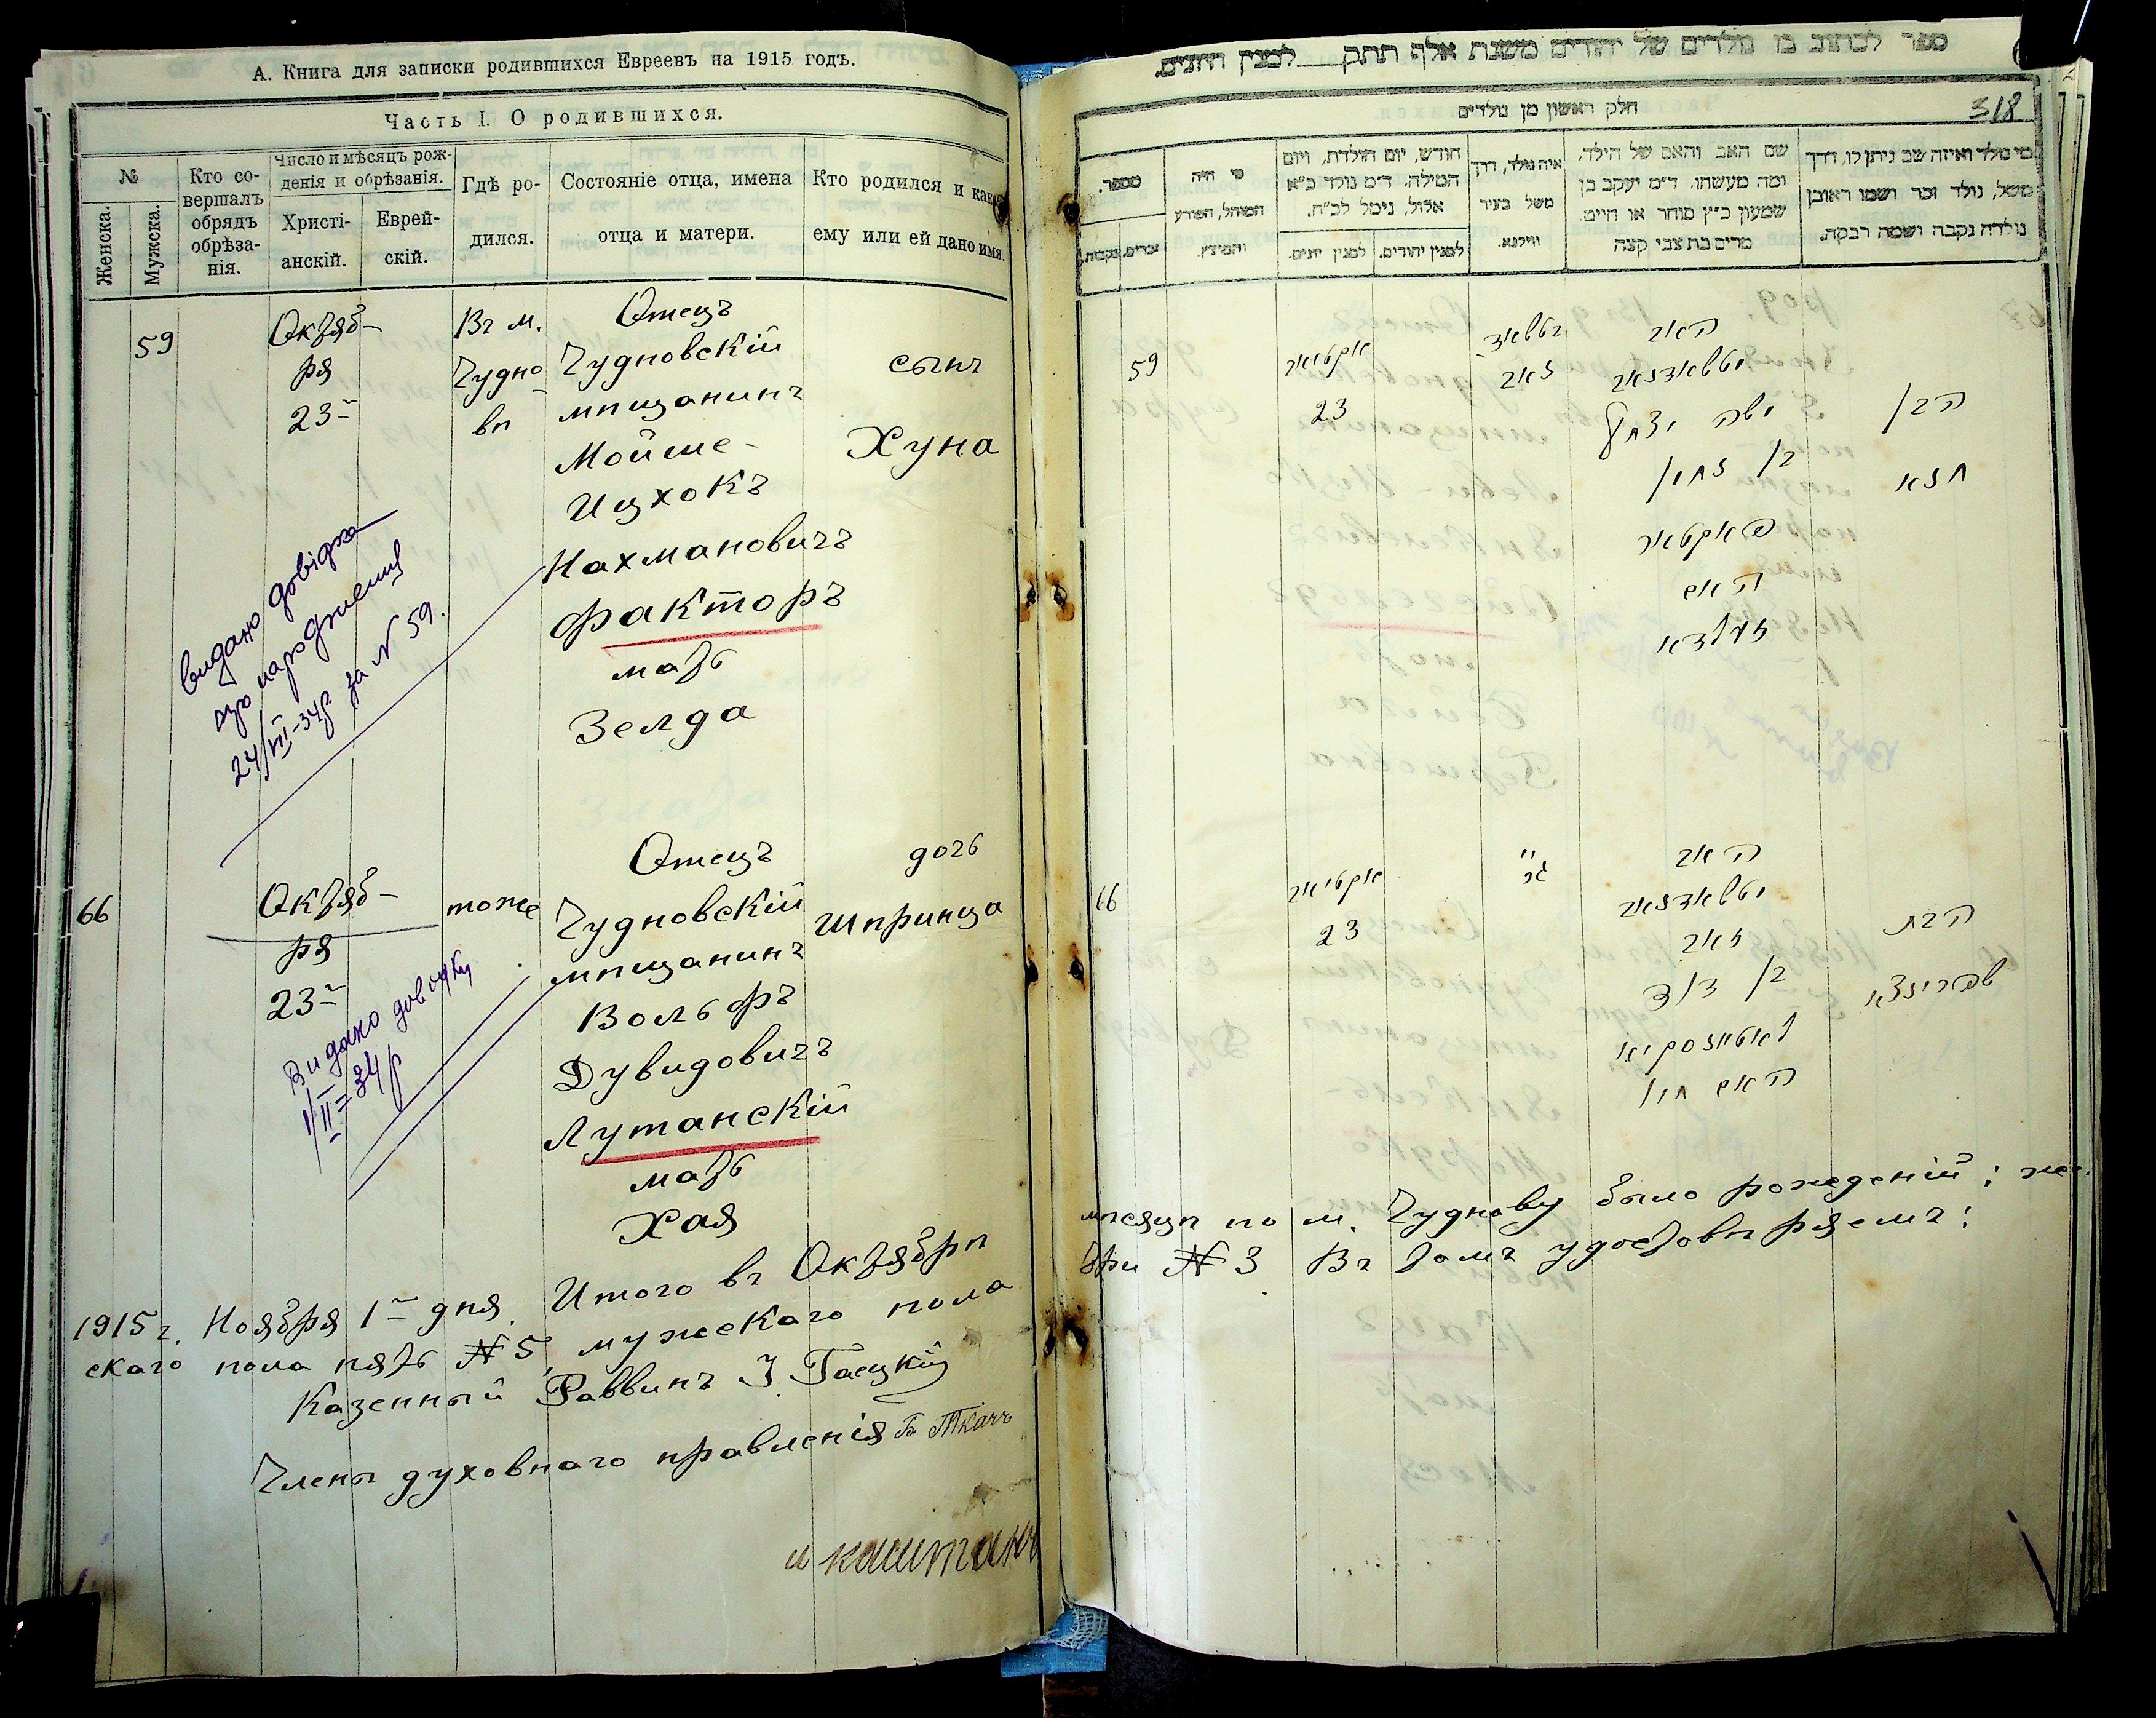 А. Книга для записки родившихся Евреевъ на 1915 годъ.
Часть I. О родившихся.
№
Женска.
Мужска.
Кто со-
вершалъ
обрядъ
обрѣза-
нія.
Число и мѣсяцъ рож-
денія и обрѣзанія.
Христі-
анскій.
Еврей-
скій.
Гдѣ ро-
дился.
Состояніе отца, имена
отца и матери.
Кто родился и какое
ему или ей дано имя.
59
Октяб-
ря
23
Въ м.
Чудно-
вѣ
Отецъ
Чудновскій
мѣщанинъ
Мойше-
Ицхокъ
Нахмановичъ
Факторъ
мать
Зелда
сынъ
Хуна
видано довідка
про народження
24/VII-34р за № 59.
66
Октяб-
ря
23
тоже
Отецъ
Чудновскій
мѣщанинъ
Вольфъ
Дувидовичъ
Лутанскій
мать
Хая
дочь
Шпринца
Видано довідку
1/II-34р
1915 г. Ноября 1 дня. Итого въ Октябрѣ
скаго пола пять № 5, мужскаго пола
Казенный Раввинъ
Члены духовнаго правленія Ткачъ
и каштанъ
ספר לכתוב בו נולדים של יהודים משנת אלף תתק למנין היונים.
318
חלק ראשון מן נולדים
מספר.
זכרים.
נקבות.
מי היה
המוהל, הפורע
והמוצץ.
חודש, יום הולדת, ויום
המילה. ד״מ נולד כ״א
אלול, נימל לכ״ח.
למנין יונים.
למנין יהודים.
איה נולד, דרך
משל בעיר
ווילנא.
שם האב והאם של הילד,
ומה מעשהו. ד״מ יעקב בן
שמעון כ״ץ סוחר או חיים
מרים בת צבי קצה
מי נולד ואיזה שם ניתן לו, דרך
משל, נולד זכר ושמו ראובן
נולדה נקבה ושמה רבקה.
59
23
האב
משה יצחק
בן נחמן
פאקטאר
האם
זעלדא
הבן
חונא
66
23
האב
זאב
בן דוד
האם חיה
הבת
שפרינצא
мѣсяцѣ по м. Чуднову было рожденій: жен-
три № 3 Въ томъ удостовѣряемъ: